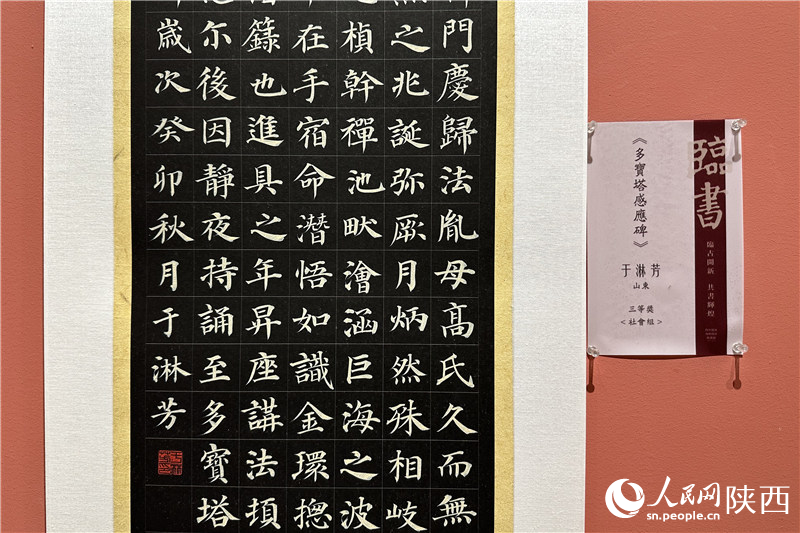 門慶歸法胤母髙氏久而無
之兆誕弥厥月炳然殊相岐
楨幹禪池畎澮涵巨海之波
在手宿命潛悟如識金環揔
籙也進具之年昇座講法頂
尓後因靜夜持誦至多寶塔
歳次癸卯秋月于淋芳
臨書
臨古開新 共書輝煌
《多寶塔感應碑》
于淋芳
山東
三等獎
<社會組>
人民网 陕西
sn.people.cn